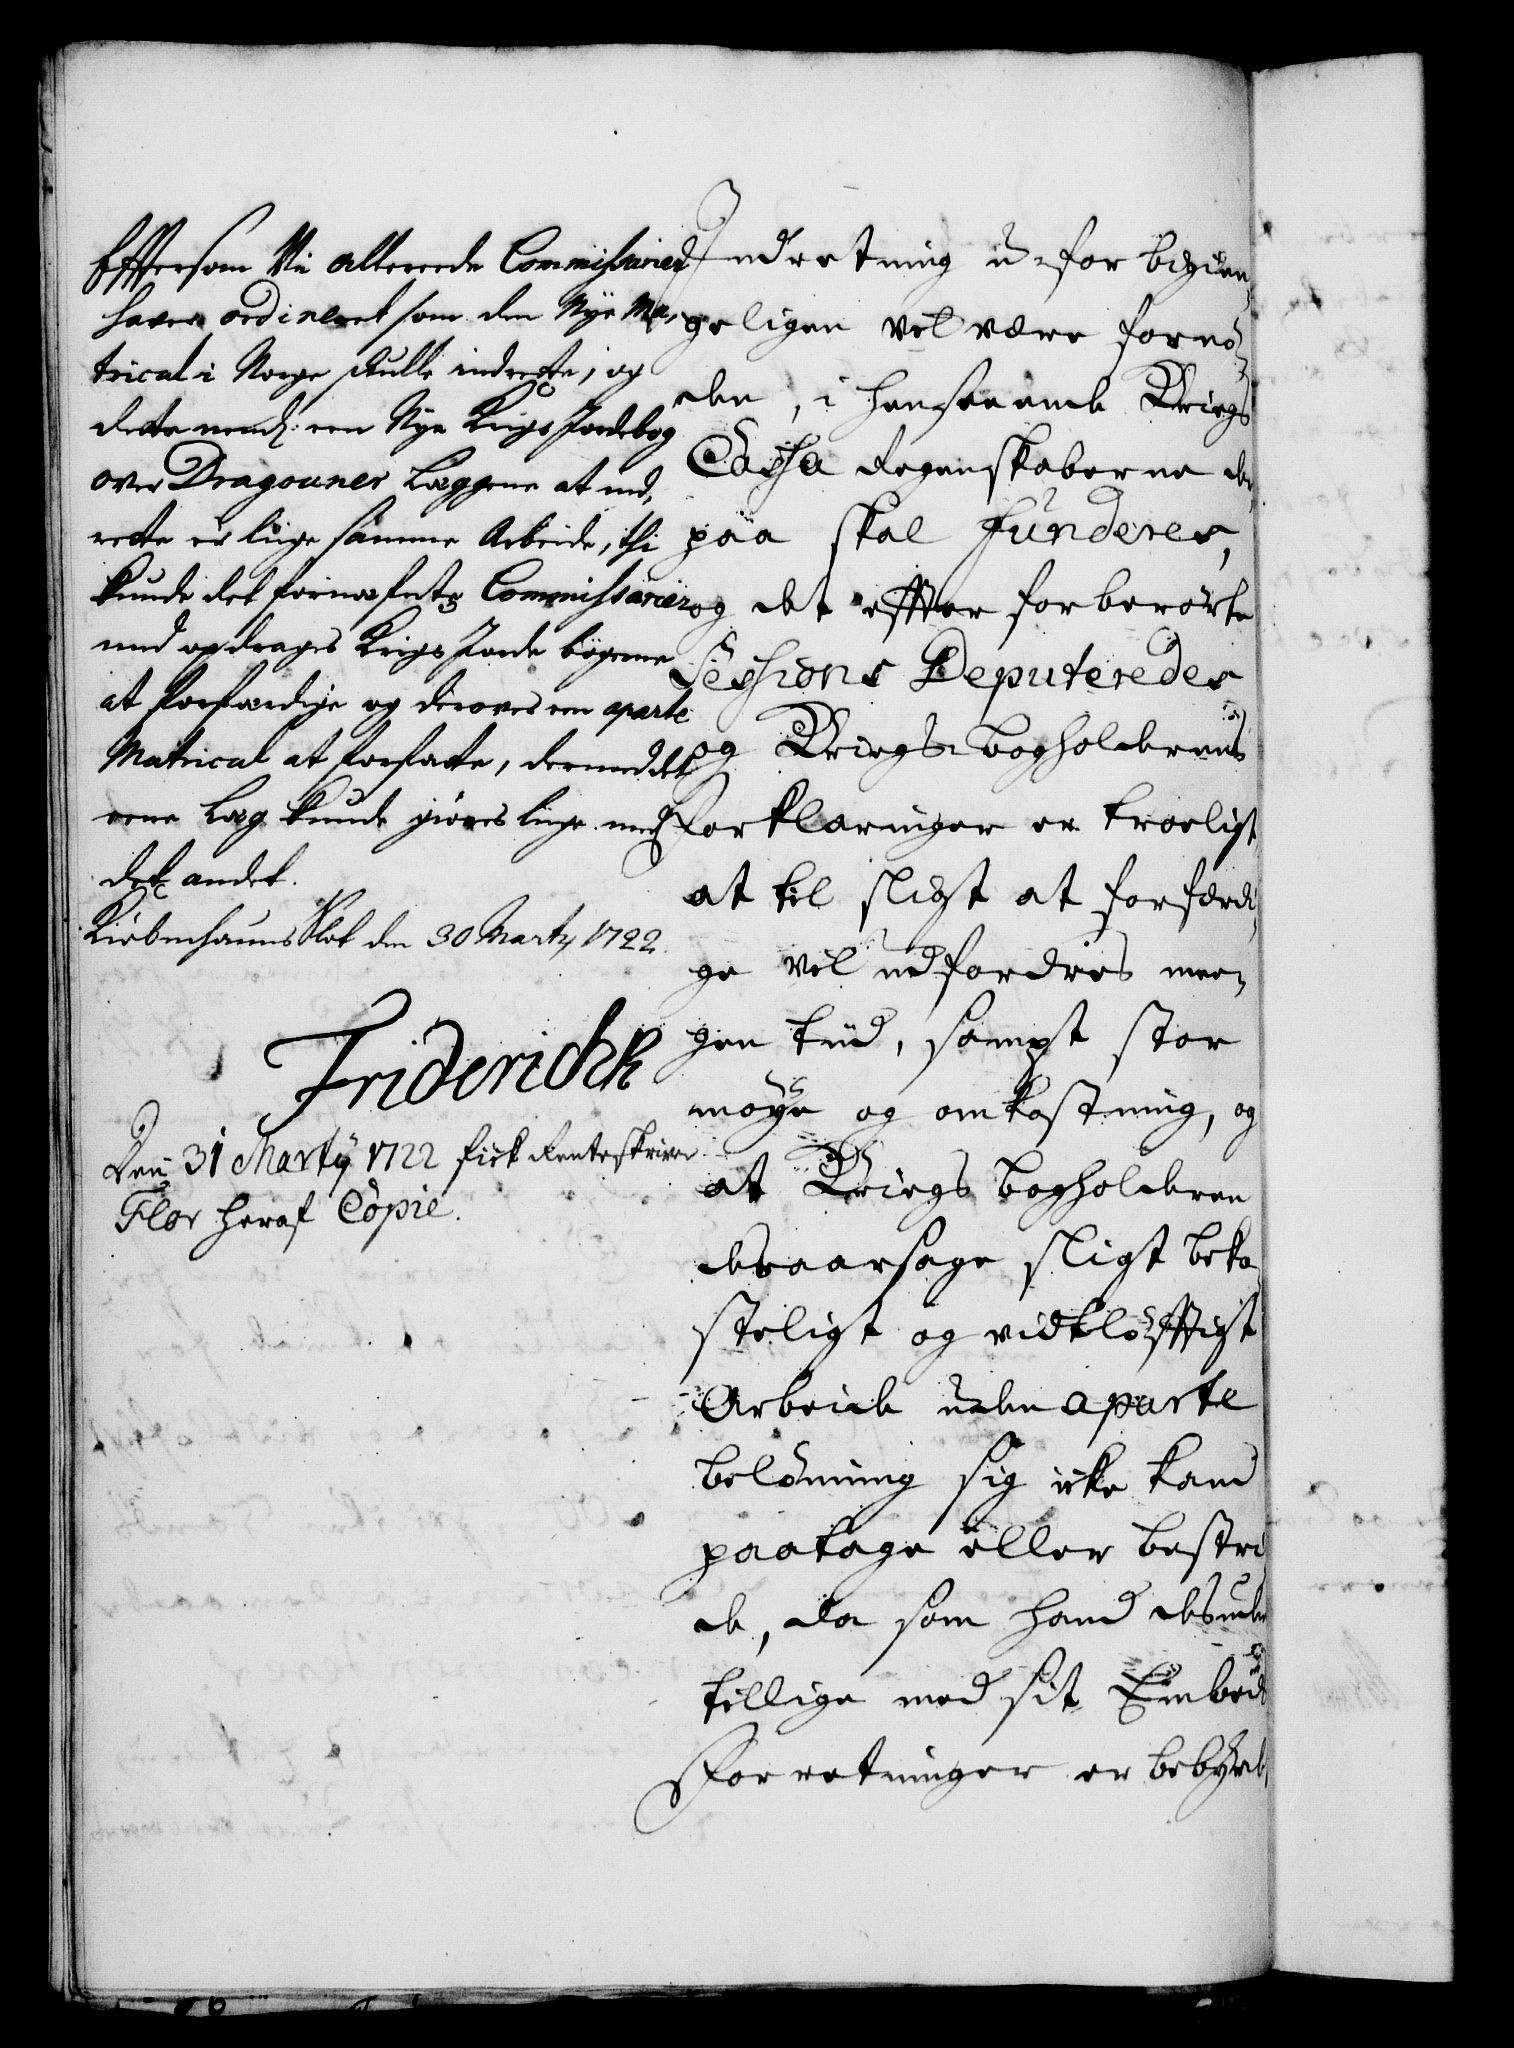 Efftersom Vi allereede Commissarier
haver ordineret som den Nye Ma-
trical i Norge skulle indrette, og
dette nemlig: een Nye Krigs Jordebog
over Dragouner Læggene at ind,
rette er liige samme Arbeide, thi
kunde det fornæfnte Commissarier
med opdrages Krigs Jorde bøgerne
at forfærdige og derover een aparte
Matrical at forfatte, dermed det
eene Læg kunde giøres liige med
det andet.
Kiøbenhauns Slot den 30 Marty 1722.
Friderich R
Den 31 Marty 1722 fick Renteskriver
Flor heraf Copie.
Indretning u-forbigien,
geligen vil være fornø-
den, i henseende Kriegs
Cassa Regenskaberne der
paa skal funderes,
og det effter forberørte
Sessions Deputeredes
og Kriegs-bogholderens
forklaringer er troeligt
at til sligt at forfærdi,
ge vil udfordres mee-
gen tiid, sampt stor
møye og omkostning, og
at Kriegs bogholderen
desaarsage sligt beko
steligt og vidtløfftigt
Arbeide uden aparte
belønning sig icke kand
paatage eller bestri
de, da som hand desuden
tillige med sit Embeds
Forretninger er bebyrdet,